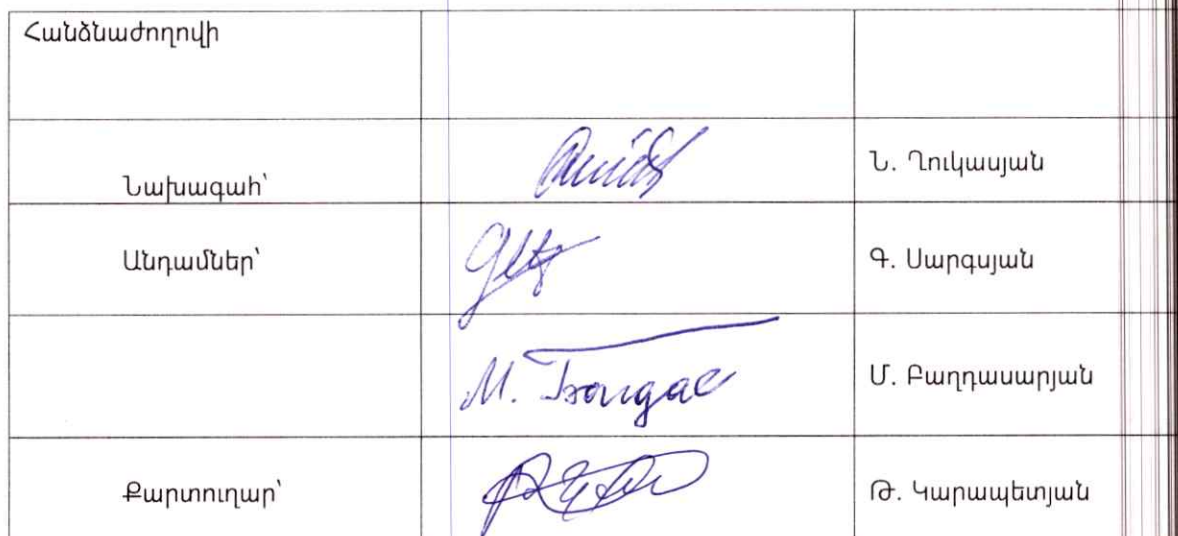 Հանձնաժողովի
Նախագահ՝ Ն. Ղուկասյան
Անդամներ՝ Գ. Սարգսյան
Մ. Բաղդասարյան
Քարտուղար՝ Թ. Կարապետյան